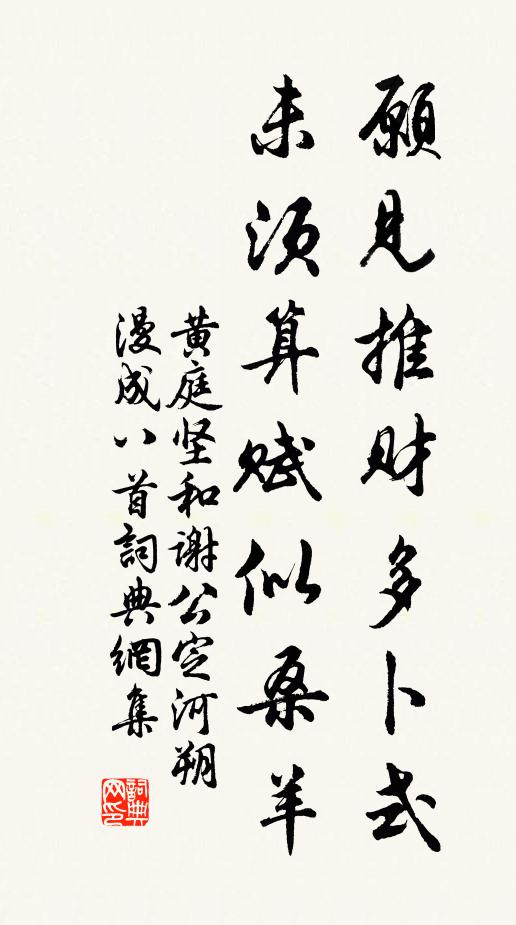 願見推财多卜式
未須算賦似桑羊
黄庭坚和谢公定河朔
漫成八首詞典網集
詞典
网印